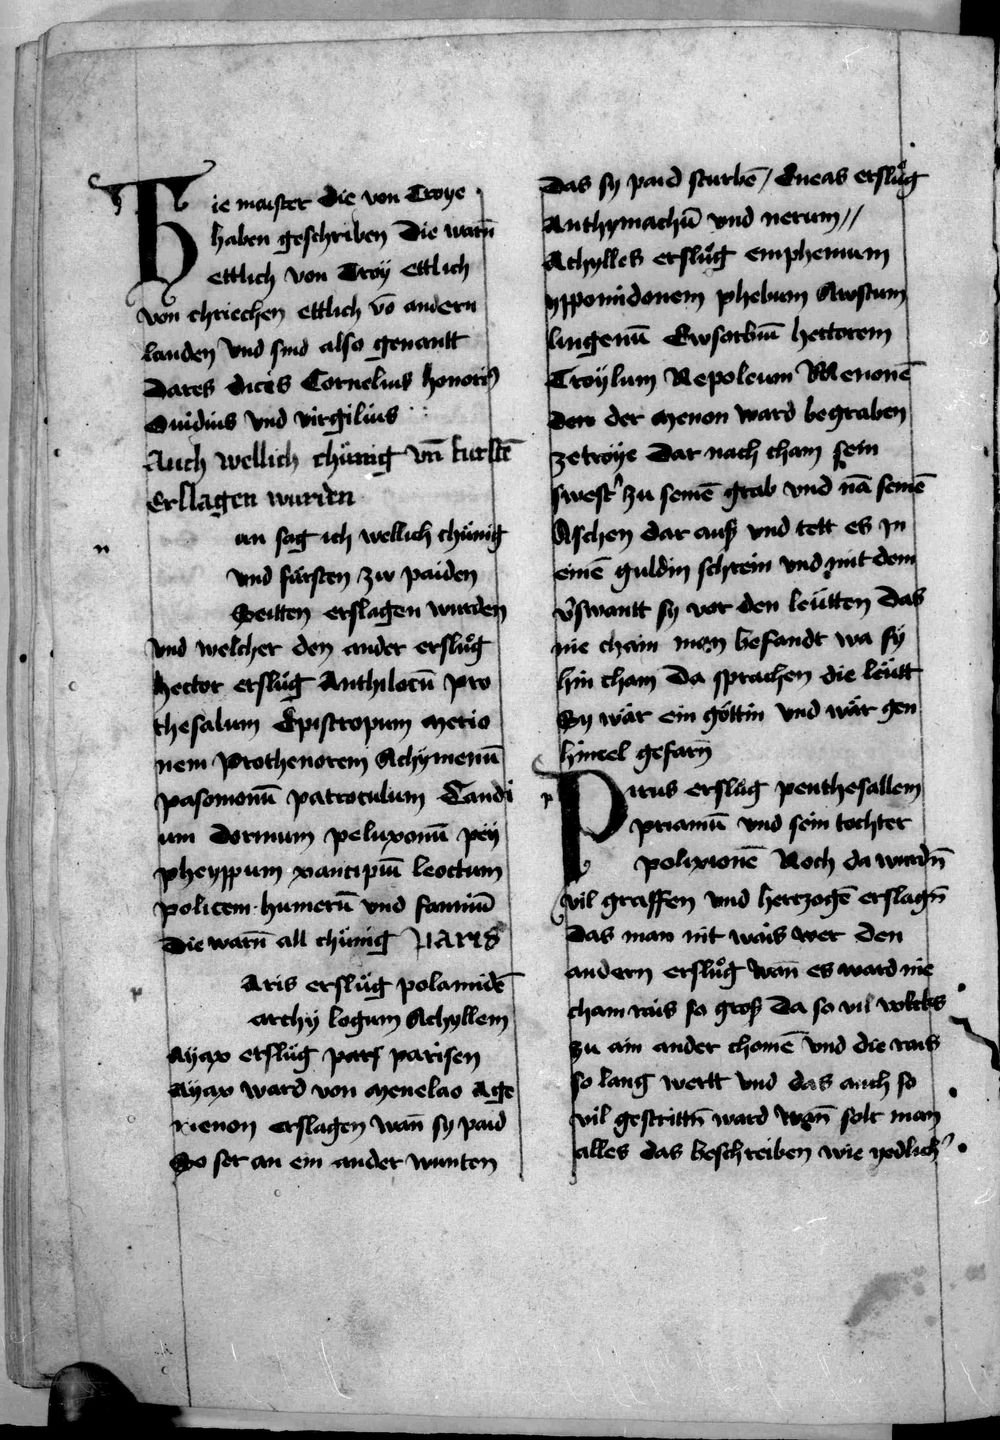 Die maister die von Troye
haben geschriben Die warn̄
ettlich von Troÿ ettlich
von chriechen ettlich vō andern
landen Vnd sind also genantt
Dares dites Cornelius honori9
Ouidius vnd virgilius
Auch wellich chünig vn̄ furstē
Erslagen wurden
n
an sag ich wellich chünig
vnd fürsten zw paiden
Seitten erslagen wurden
Vnd welcher den ander erslůg
hector erslüg Anthilocū Pro
thesalum Epistropum merio
nem Prothenorem Achymenū
pasomonū patroculum Candi
um dormum peluxonū pey
pheyppum xantipiū leoctum
policem humerū vnd famiū
Die warn̄ all chünig PARIS
p
Aris erslůg polamidē
archy logum Achyllem
Ayax erslüg pars parisen
Ayax ward von menelao Age
menon erslagen wan̄ sy paid
So ser an ein ander wunten
Das sy paid sturbē / Eneas erslůg
Anthymachū vnd nerum //
Achylles erslůg emphemum
ypponidonem phebum Austum
lingenū Ewforbiū hectorem
Troylum Nepoleum Menonē
den der menon ward begraben
ze troye Dar nach cham sein
swest' zu seinē grab vnd nā seinē
Aschen dar auß vnd tett es jn
einē guldin schrein vnd mit dem
v'swantt sy vor den leütten Das
nie chain man befandt wa sy
hin cham Da sprachen die leütt
Sy wär ein göttin vnd wär gen
himel gefarn̄
p
Pirus erslůg penthesallem
priamū vnd sein tochter
polixionē Noch da wurdn̄
vil graffen vnd hertzogē erslagn̄
Das man nit wais wer den
andern erslůg wan̄ es ward nie
cham rais so groß Da so vil volcks
zu ain ander chomē Vnd die rais
so lang wertt Vnd das auch so
vil gestrittn̄ ward wan̄ solt man
alles das beschreiben wie yedlich'